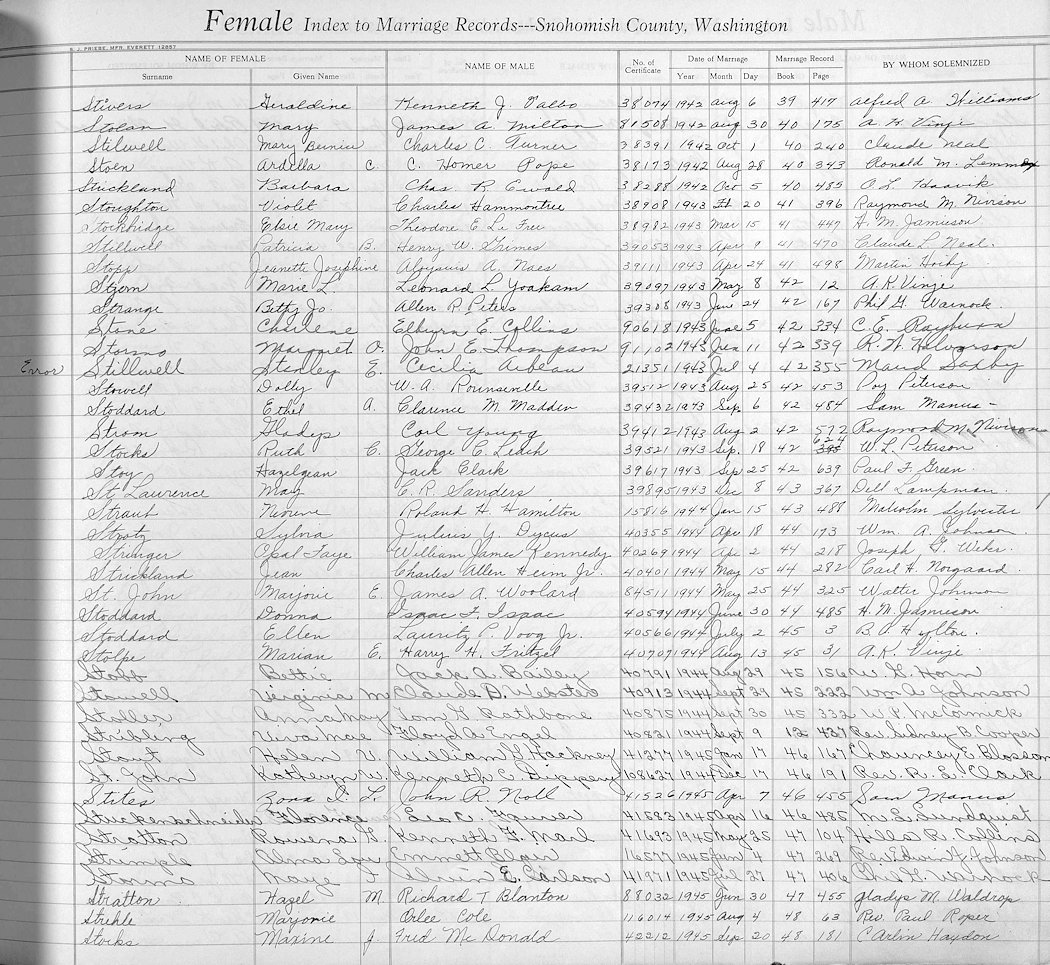 Female Index to Marriage Records---Snohomish County, Washington
S. J. PRIEBE, MFR. EVERETT 12057
NAME OF FEMALE NAME OF MALE No. of Certificate Date of Marriage Marriage Record BY WHOM SOLEMNIZED
Surname Given Name Year Month Day Book Page
Stivers Geraldine Kenneth J. Valbo 38074 1942 Aug 6 39 417 Alfred A. Williams
Stolan Mary James A. Milton 81508 1942 Aug 30 40 175 A. K. Vinje
Stilwell Mary Bernice Charles C. Turner 38391 1942 Oct 1 40 240 Claude Neal
Stoen Ardella C. C. Homer Pope 38173 1942 Aug 28 40 343 Ronald M.
Stuckland Barbara Chas. R. Ewald 38288 1942 Oct 5 40 485 O L Haavik
Stoughton Violet Charles Hammontree 38908 1943 20 41 396 Raymond M. Nivison
Stockbridge Elsie Mary Theodore E 38982 1943 Mar 15 41 447 H. M. Jamieson
Stillwell Patricia B. Henry W. Grimes 39053 1943 Apr 9 41 470 Claude L. Neal.
Stopp Jeanette Josephine Aloysius A. Naes 39111 1943 Apr 24 41 498 Martin Hoiby
Strom Marie L Leonard L. Yoakam 39097 1943 May 8 42 12 A.K. Vinje
Strange Betty Jo. Allen R. Peters 39308 1943 June 24 42 167 Phil G. Warnock.
Stone Charlene Elburn E. Collins 90618 1943 June 5 42 334 C. E. Rayburn
Stormo Margaret O. John E. Thompson 91102 1943 Jun 11 42 339 R. A. Halvorson
Error Stillwell Stanley E. Cecilia Aubeau 21351 Jul 4 42 355 Maud Saxby
Stowell Dolly W. A. Rounseville 39512 1943 Aug 25 42 453 Roy Peterson
Stoddard Ethel A. Clarence M. Madden 39432 1943 Sep 6 42 484 Sam Manus -
Strom Gladys Carl Young 39412 1943 Aug 2 42 572 Raymond M. Nivison
Stocks Ruth C. George C. Leach 39521 1943 Sep. 18 42 624 W. L. Peterson
Stoy Hazeljean Jack Clark 39617 1943 Sep 25 42 639 Paul F. Green.
St. Lawrence May C. R. Sanders 39895 1943 Dec 8 43 367 Dell Lampman.
Straut Roland H. Hamilton 15816 1944 Jan 15 43 488 Malcolm Sylvester
Strotz Sylvia Julius Y. Dycus 40355 1944 Apr 18 44 173 Wm. A. Johnson
Stringer Opal Faye William James Kennedy 40269 1944 Apr 2 44 218 Joseph G. Weber.
Strickland Jean Charles Allen Heim Jr. 40401 1944 May 15 44 282 Carl H. Norgaard.
St. John Marjorie E. James A. Woolard 84511 1944 May 25 44 325 Walter Johnson
Stoddard Donna Isaac F. Isaac 40594 1944 June 30 44 485 H. M. Jamieson
Stoddard Ellen Lauritz P. Voog Jr. 40566 1944 July 2 45 3 B. A. Hylton.
Stolpe Marian E. Harry H. Fritzel 40707 1944 Aug 13 45 31 A. K. Vinje
Bettie Jack A. Bailey 40791 1944 Aug 29 45 156 W. G. Horn
Stowell Virginia M Claude D. Webster 40913 1944 Sept 29 45 222 Wm A. Johnson
Stoller Anna May Tom G. Rathbone 40875 1944 Sept 30 45 332 W. P. McCormick
Stribling Viva Mae Floyd A. Engel 40821 1944 Sept 9 12 437 Rev. Sidney B. Cooper
Stout Helen V. William S. Hackney 41277 1945 Jan 17 46 167 Chauncey E. Blossom
St. John Katheryn W. Kenneth C. 108627 1944 Dec 17 46 191 Rev. R. E. Clark
Stites Zona I. L. John R. Noll 41526 1945 Apr 7 46 455 Sam Manus
Stuckenschneider Florence Leo C. 41583 1945 Apr 16 46 485 M. L. Sundquist
Stratton Rowena G. Kenneth F. Marl 41693 1945 May 25 47 104 Hollis R. Collins
Strimple Alma Lou Emmett Blair 16577 1945 Jun 4 47 269 Rev Edwin J. Johnson
Stormo Maye F Alvin E. Carlson 41971 1945 Jul 27 47 406 Phil G. Warnock
Stratton Hazel M. Richard T Blanton 88032 1945 Jun 30 47 455 Gladys M. Waldrop
Strehle Marjorie Orlee Cole 116014 1945 Aug 4 48 63 Rev. Paul Roper
Stocks Maxine J. Fred McDonald 42212 1945 Sep 20 48 181 C Arlin Haydon